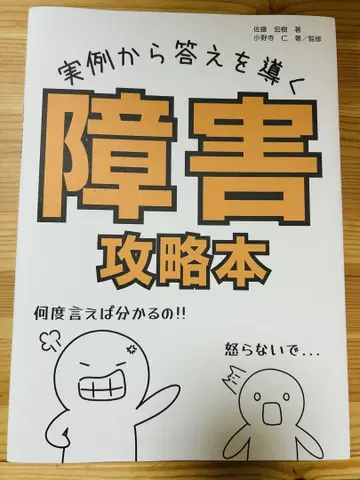 佐藤 宏樹 著
小野寺 仁 著／監修
実例から答えを導く
障害
攻略本
何度言えば分かるの!!
怒らないで...